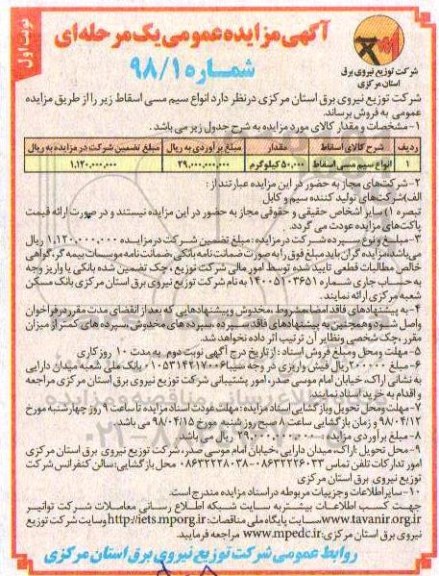 نوبت اول
آگهی مزایده عمومی یک مرحله ای
شماره ۹۸/۱
شرکت توزیع نیروی برق
استان مرکزی
شرکت توزیع نیروی برق استان مرکزی درنظر دارد انواع سیم مسی اسقاط زیر را از طریق مزایده
عمومی به فروش برساند.
۱-مشخصات و مقدار کالای مورد مزایده به شرح جدول زیر می باشد.
ردیف شرح کالای اسقاط مقدار مبلغ برآوردی به ریال مبلغ تضمین شرکت در مزایده به ریال
۱ انواع سیم مسی اسقاط ۵۰,۰۰۰ کیلوگرم ۲۹,۰۰۰,۰۰۰,۰۰۰ ۱,۱۲۰,۰۰۰,۰۰۰
۲-شرکت‌های مجاز به حضور در این مزایده عبارتند از:
الف)شرکت‌های تولید کننده سیم و کابل
تبصره ۱) سایر اشخاص حقیقی و حقوقی مجاز به حضور در این مزایده نیستند و در صورت ارائه قیمت
پاکت‌های مزایده عودت می گردد.
۳-مبلغ و نوع سپرده شرکت در مزایده: مبلغ تضمین شرکت در مزایده ۱,۱۲۰,۰۰۰,۰۰۰ ریال
می‌باشد،مزایده گران باید مبلغ فوق را به صورت ضمانت نامه بانکی،ضمانت نامه موسسات بیمه گر،گواهی
خالص مطالبات قطعی تایید شده توسط امور مالی شرکت توزیع، چک تضمین شده بانکی یا واریز وجه
به حساب جاری شماره ۱۴۰۰۵۱۰۳۶۵۱ به نام شرکت توزیع نیروی برق استان مرکزی بانک مسکن
شعبه مرکزی ارائه نمایند.
۴-به پیشنهادهای فاقد امضا،مشروط ،مخدوش و پیشنهادهایی که بعد از انقضای مدت مقرر در فراخوان
واصل شود و همچنین به پیشنهادهای فاقد سپرده ،سپرده های مخدوش،سپرده های کمتر از میزان
مقرر،چک شخصی و نظایر آن ترتیب اثر داده نخواهد شد.
۵-مهلت ومحل و مبلغ فروش اسناد: از تاریخ درج آگهی نوبت دوم به مدت ۱۰ روز کاری
۶-مبلغ ۲۰۰,۰۰۰ ریال فیش واریزی در وجه سیبا ۰۱۰۵۳۱۴۴۲۱۷۰۰۶ بانک ملی شعبه میدان دارایی
به نشانی اراک، خیابان امام موسی صدر، امور پشتیبانی شرکت توزیع نیروی برق استان مرکزی مراجعه
و اقدام به خرید اسناد نمایند.
۷-مهلت محل تحویل وبازگشایی اسناد مزایده:مهلت عودت اسناد مزایده تا ساعت ۹ روز چهارشنبه مورخ
۹۸/۰۴/۱۲ و زمان بازگشایی ساعت ۸ صبح روز شنبه مورخ ۹۸/۰۴/۱۵ می باشد.
۸-مبلغ برآوردی مزایده ۲۹,۰۰۰,۰۰۰,۰۰۰ ریال می باشد.
۹-محل تحویل :اراک، میدان دارایی،خیابان امام موسی صدر، شرکت توزیع نیروی برق استان مرکزی
امور تدارکات تلفن تماس ۰۸۶۳۲۲۲۶۰۳۳-۰۸۶۳۲۲۲۸۰۳۸ محل بازگشایی:سالن کنفرانس شرکت
توزیع نیروی برق استان مرکزی
۱۰-سایر اطلاعات و جزییات مربوطه در اسناد مزایده مندرج است.
جهت کسب اطلاعات بیشتر به سایت شبکه اطلاع رسانی معاملات شرکت توانیر
www.tavanir.org.ir سایت پایگاه ملی مناقصات: http://iets.mporg.ir وسایت شرکت توزیع
نیروی برق استان مرکزی: www.mpedc.ir مراجعه فرمایید.
روابط عمومی شرکت توزیع نیروی برق استان مرکزی